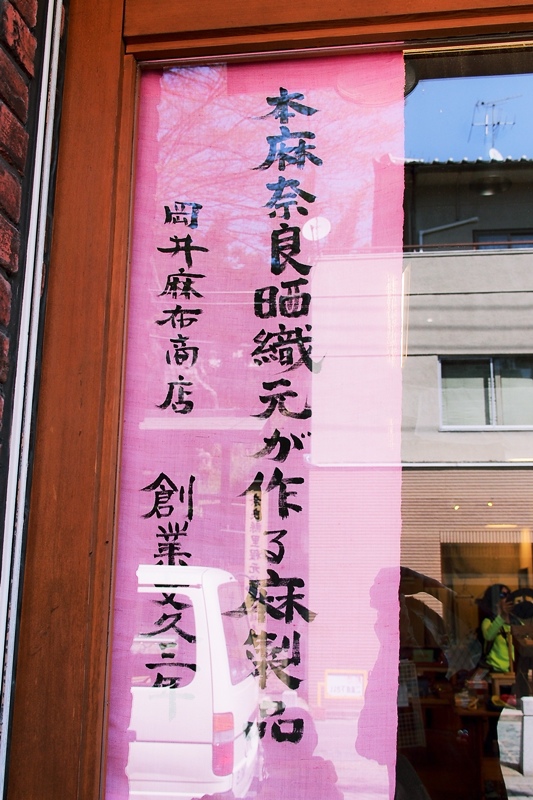 本麻奈良晒織元が作る麻製品
岡井麻布商店 創業文久三年